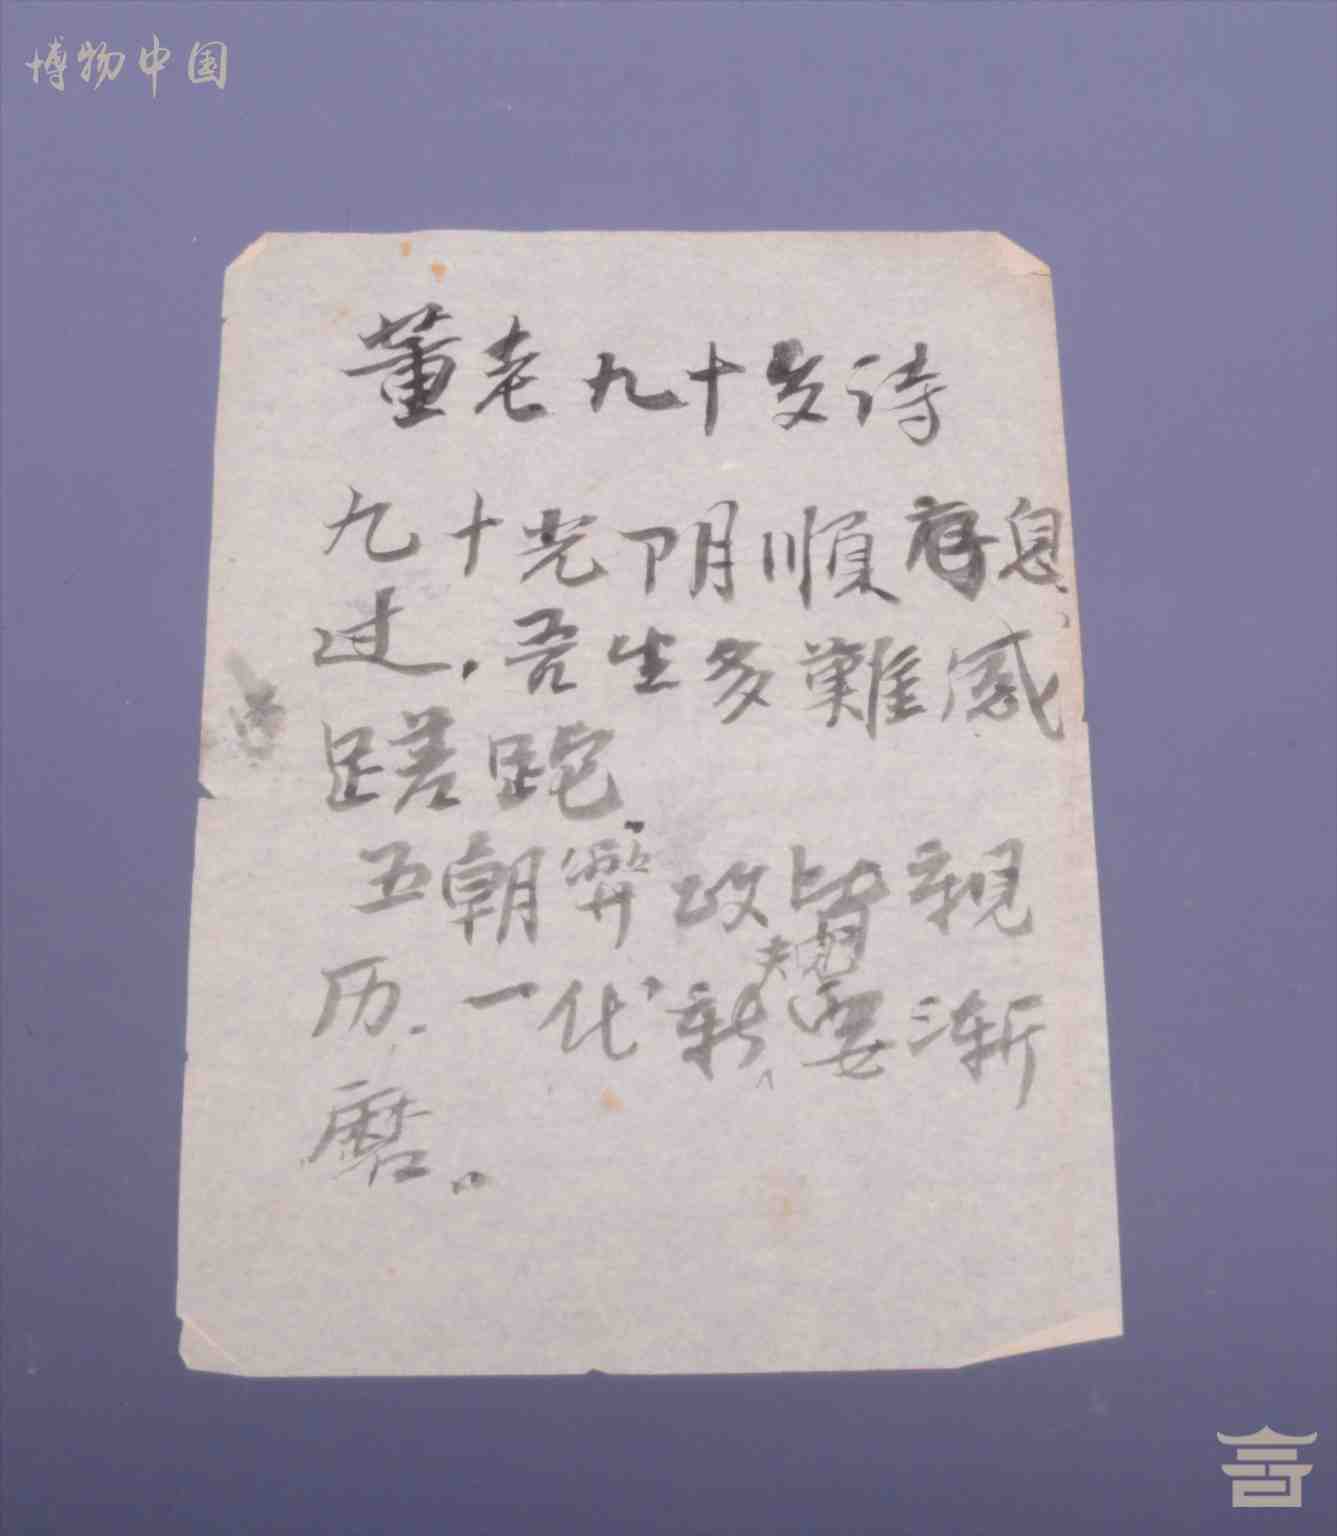 博物中国
董老九十岁诗
九十光阴順息
过,吾生多難感
蹉跎.
五朝弊政皆親
历.一代新規要漸
磨。